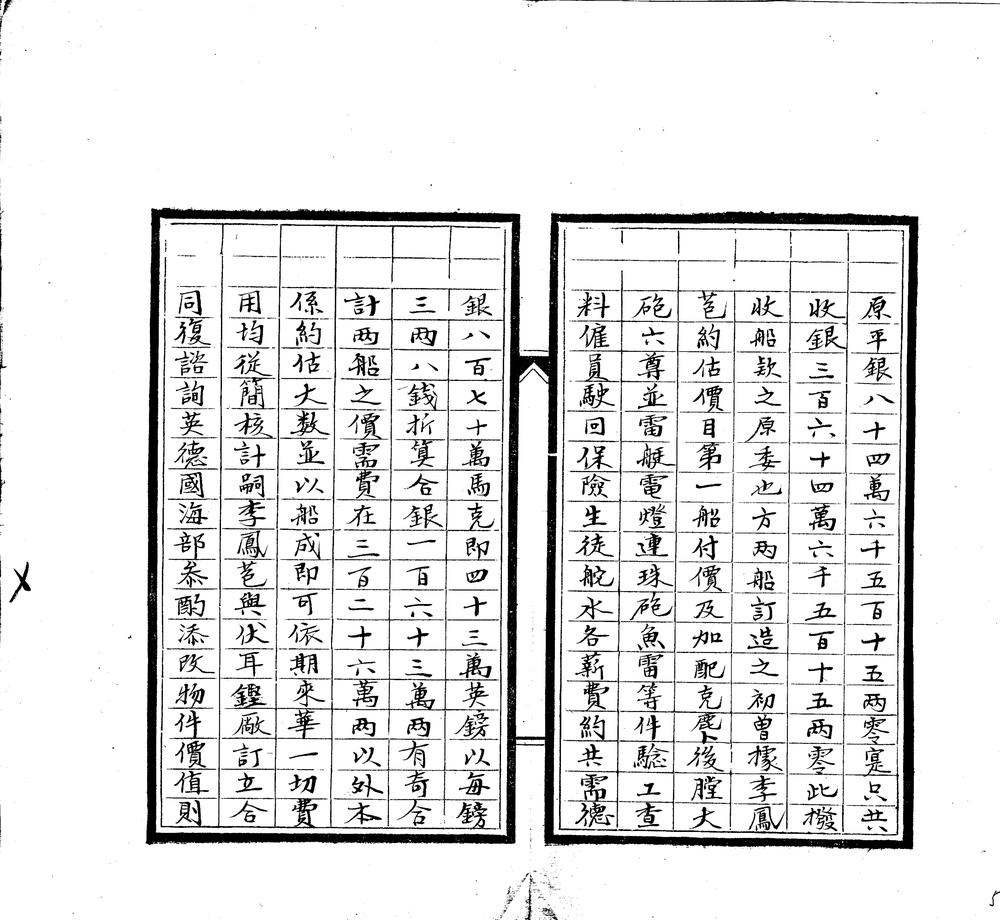 原平銀八十四萬六千五百十五两零寔只共
收銀三百六十四萬六千五百十五两零此撥
收船欵之原委也方两船訂造之初曾據李鳳
苞約估價目第一船付價及加配克鹿卜後膛大
砲六尊並雷艇電燈連珠砲魚雷等件驗工查
料僱員駛回保險生徒舵水各薪費約共需德
銀八百七十萬馬克即四十三萬英鎊以每鎊
三两八錢折算合銀一百六十三萬两有奇合
計两船之價需費在三百二十六萬两以外本
係約估大数並以船成即可依期來華一切費
用均從簡核計嗣李鳳苞與伏耳鏗厰訂立合
同復諮詢英德國海部叅酌添改物件價值則